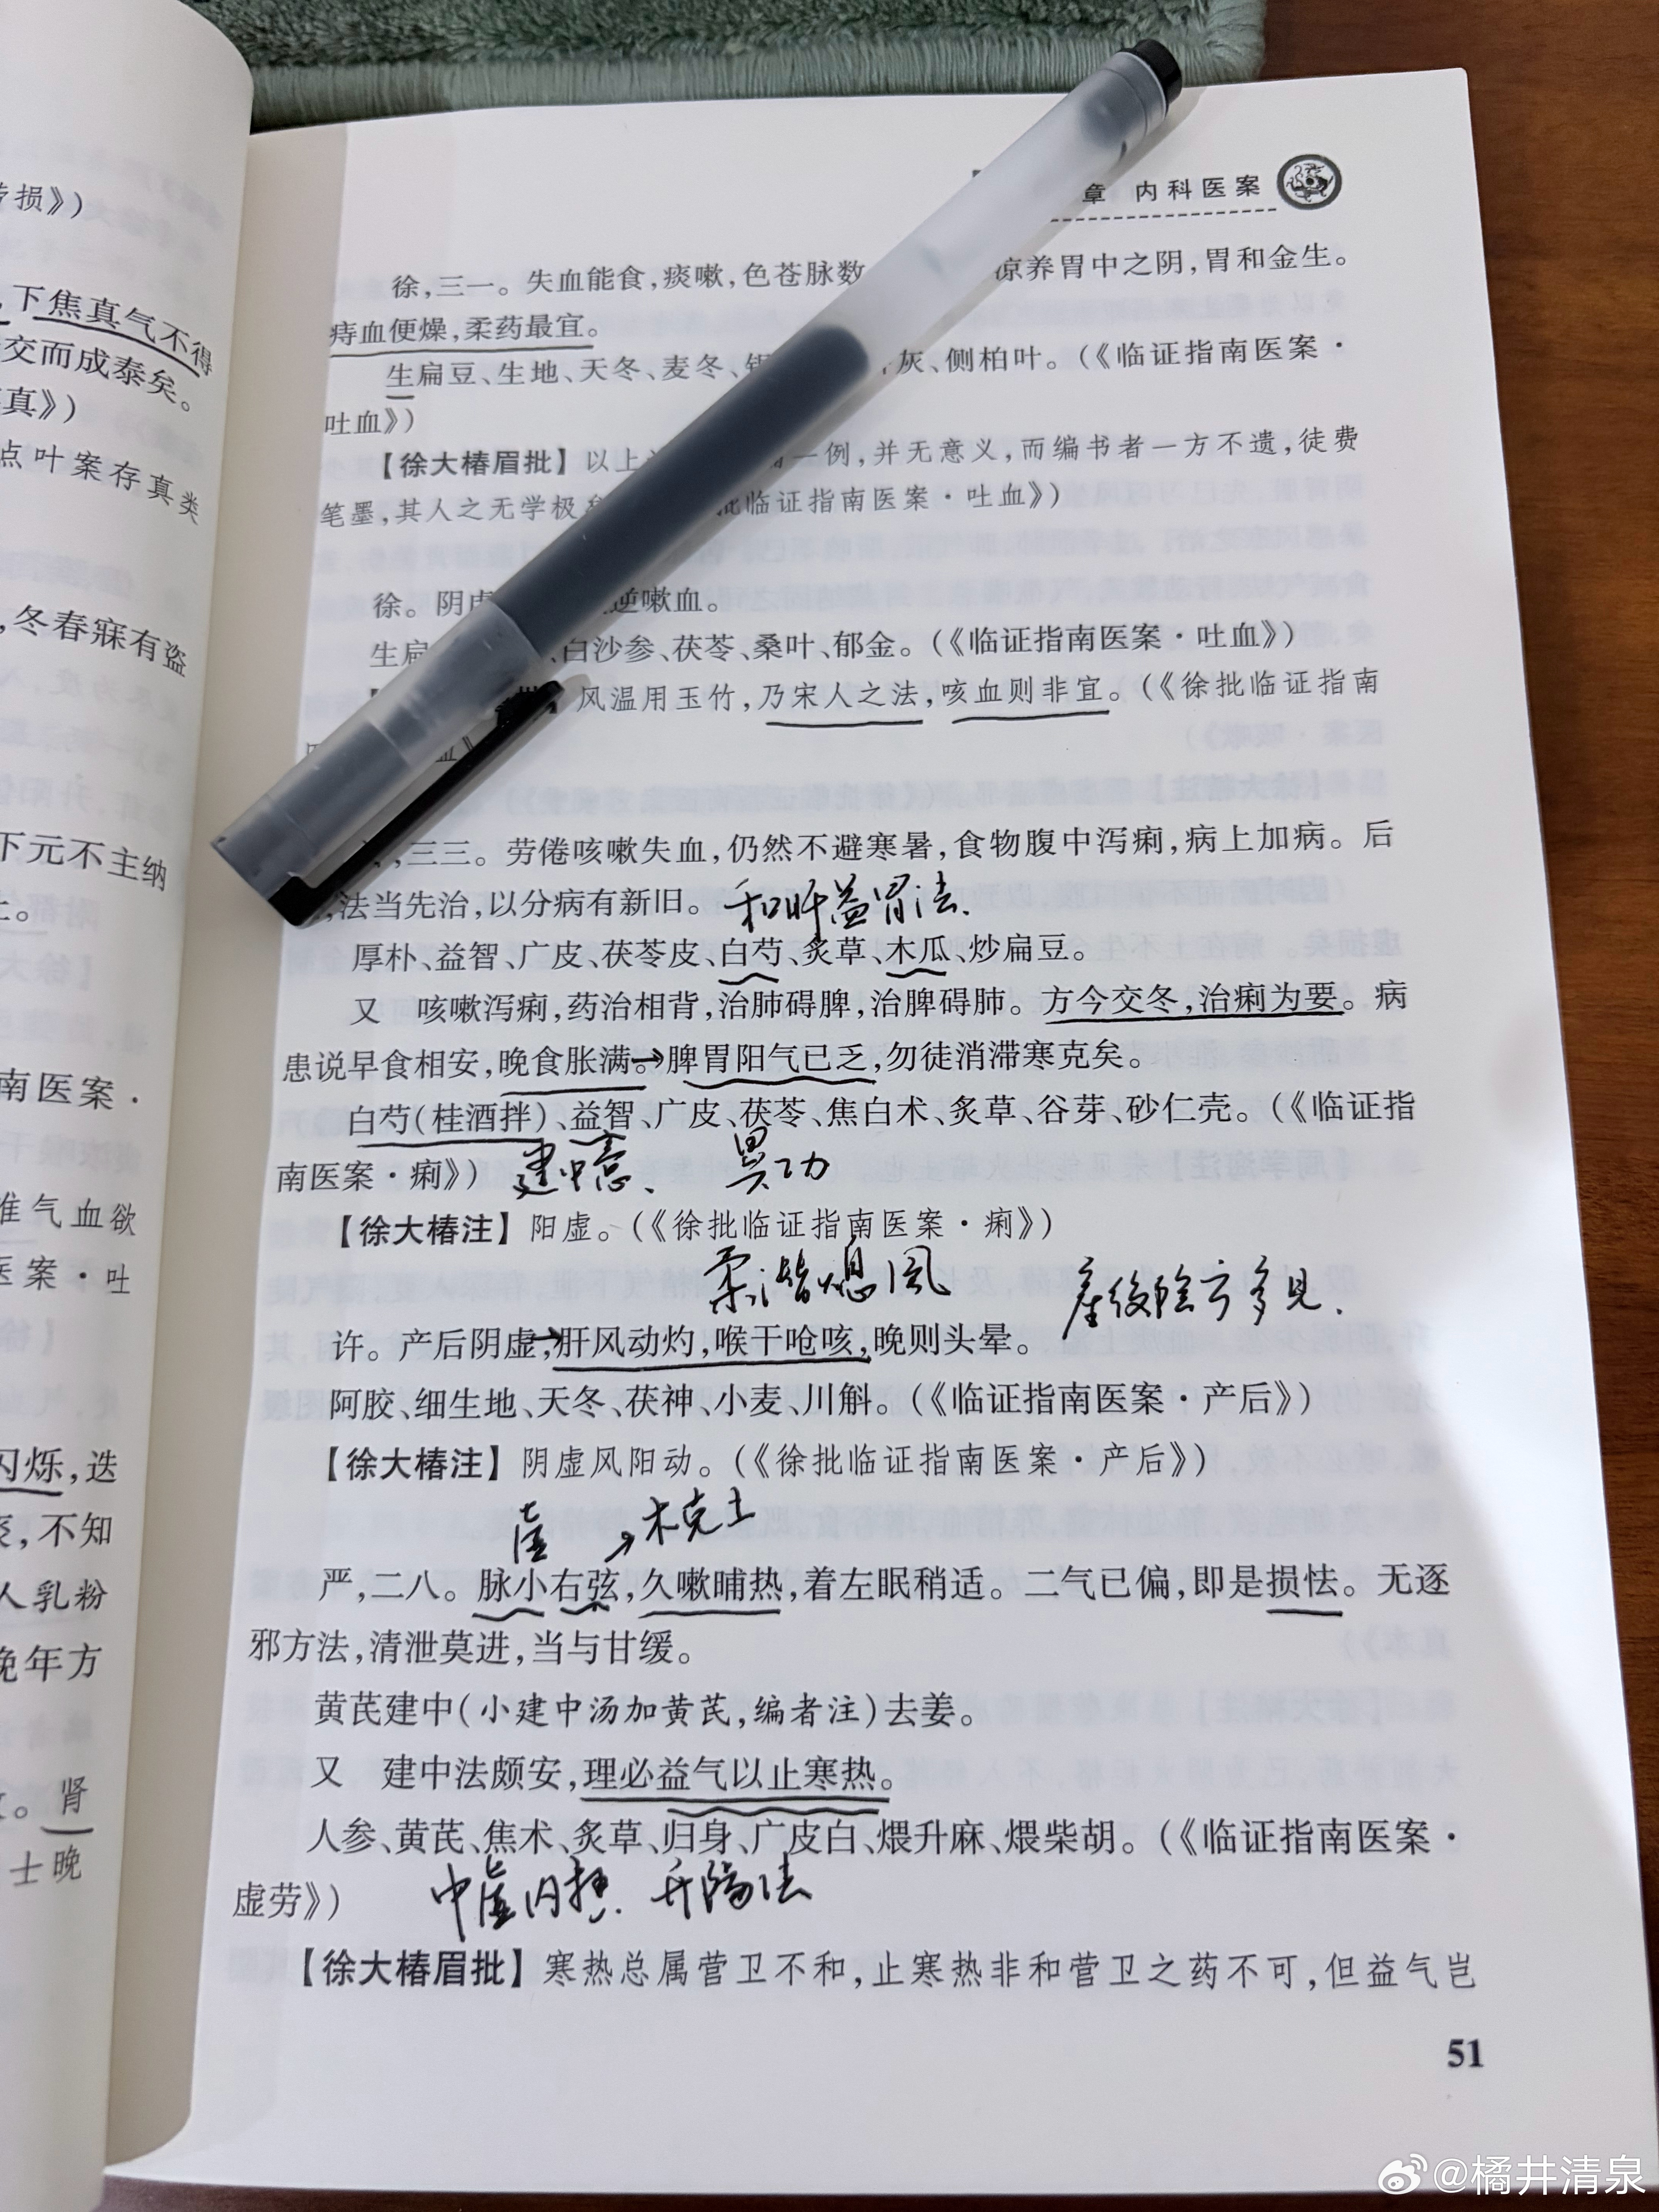 劳损》)
，下焦真气不得
交而成泰矣。
真》)
点叶案存真类
，冬春寐有盗
下元不主纳
上。
【徐大
南医案·
准气血欲
医案·吐
闪烁，迭
，不知
人乳粉
晚年方
。肾
士晚
章 内科医案
徐，三一。失血能食，痰嗽，色苍脉数
凉养胃中之阴，胃和金生。
痔血便燥，柔药最宜。
生扁豆、生地、天冬、麦冬、
灰、侧柏叶。(《临证指南医案·
吐血》)
【徐大椿眉批】以上
一例，并无意义，而编书者一方不遗，徒费
笔墨，其人之无学极矣
批临证指南医案·吐血》)
徐。阴虚
逆嗽血。
生扁
、白沙参、茯苓、桑叶、郁金。(《临证指南医案·吐血》)
批】风温用玉竹，乃宋人之法，咳血则非宜。(《徐批临证指南
血》
，三三。劳倦咳嗽失血，仍然不避寒暑，食物腹中泻痢，病上加病。后
，法当先治，以分病有新旧。 和肝益胃法.
厚朴、益智、广皮、茯苓皮、白芍、炙草、木瓜、炒扁豆。
又 咳嗽泻痢，药治相背，治肺碍脾，治脾碍肺。方今交冬，治痢为要。病
患说早食相安，晚食胀满。→脾胃阳气已乏，勿徒消滞寒克矣。
白芍(桂酒拌)、益智、广皮、茯苓、焦白术、炙草、谷芽、砂仁壳。(《临证指
南医案·痢》) 建中意、 異功
【徐大椿注】阳虚。(《徐批临证指南医案·痢》)
柔潜熄風
產後陰亏多見.
许。产后阴虚，→肝风动灼，喉干呛咳，晚则头晕。
阿胶、细生地、天冬、茯神、小麦、川斛。(《临证指南医案·产后》)
【徐大椿注】阴虚风阳动。(《徐批临证指南医案·产后》)
虚 →木克土
严，二八。脉小右弦，久嗽晡热，着左眠稍适。二气已偏，即是损怯。无逐
邪方法，清泄莫进，当与甘缓。
黄芪建中(小建中汤加黄芪，编者注)去姜。
又 建中法颇安，理必益气以止寒热。
人参、黄芪、焦术、炙草、归身、广皮白、煨升麻、煨柴胡。(《临证指南医案·
虚劳》) 中虚内損. 升陽法
【徐大椿眉批】寒热总属营卫不和，止寒热非和营卫之药不可，但益气岂
51
@橘井清泉